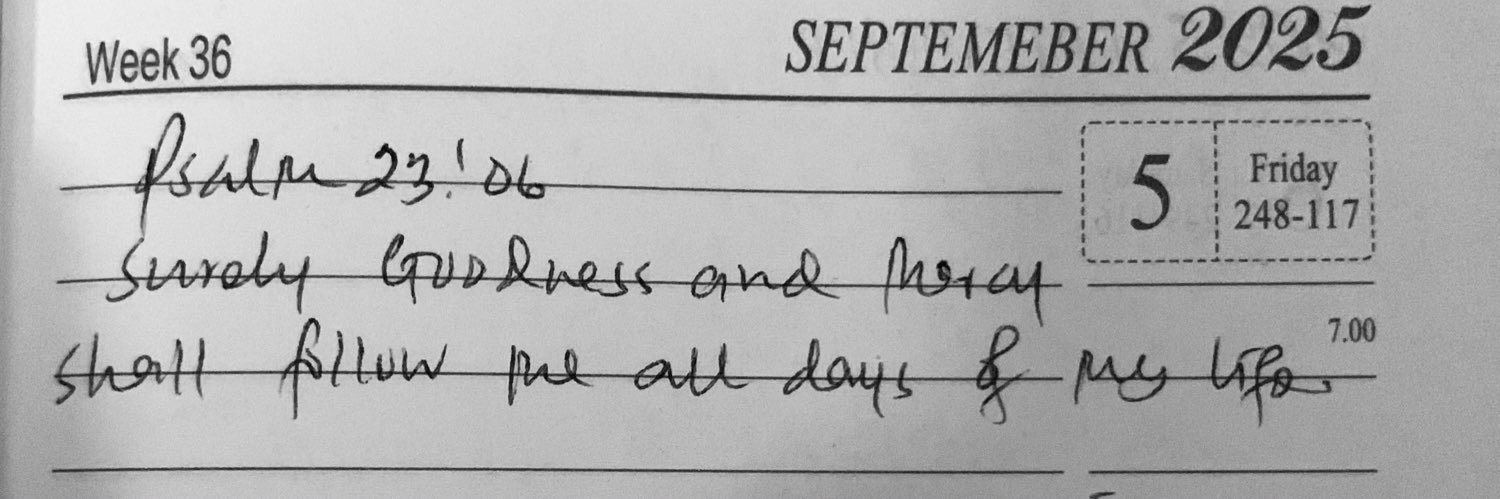 Week 36 SEPTEMEBER 2025
Psalm 23:06
5 Friday
248-117
Surely Goodness and Mercy
7.00
shall follow me all days of my life.